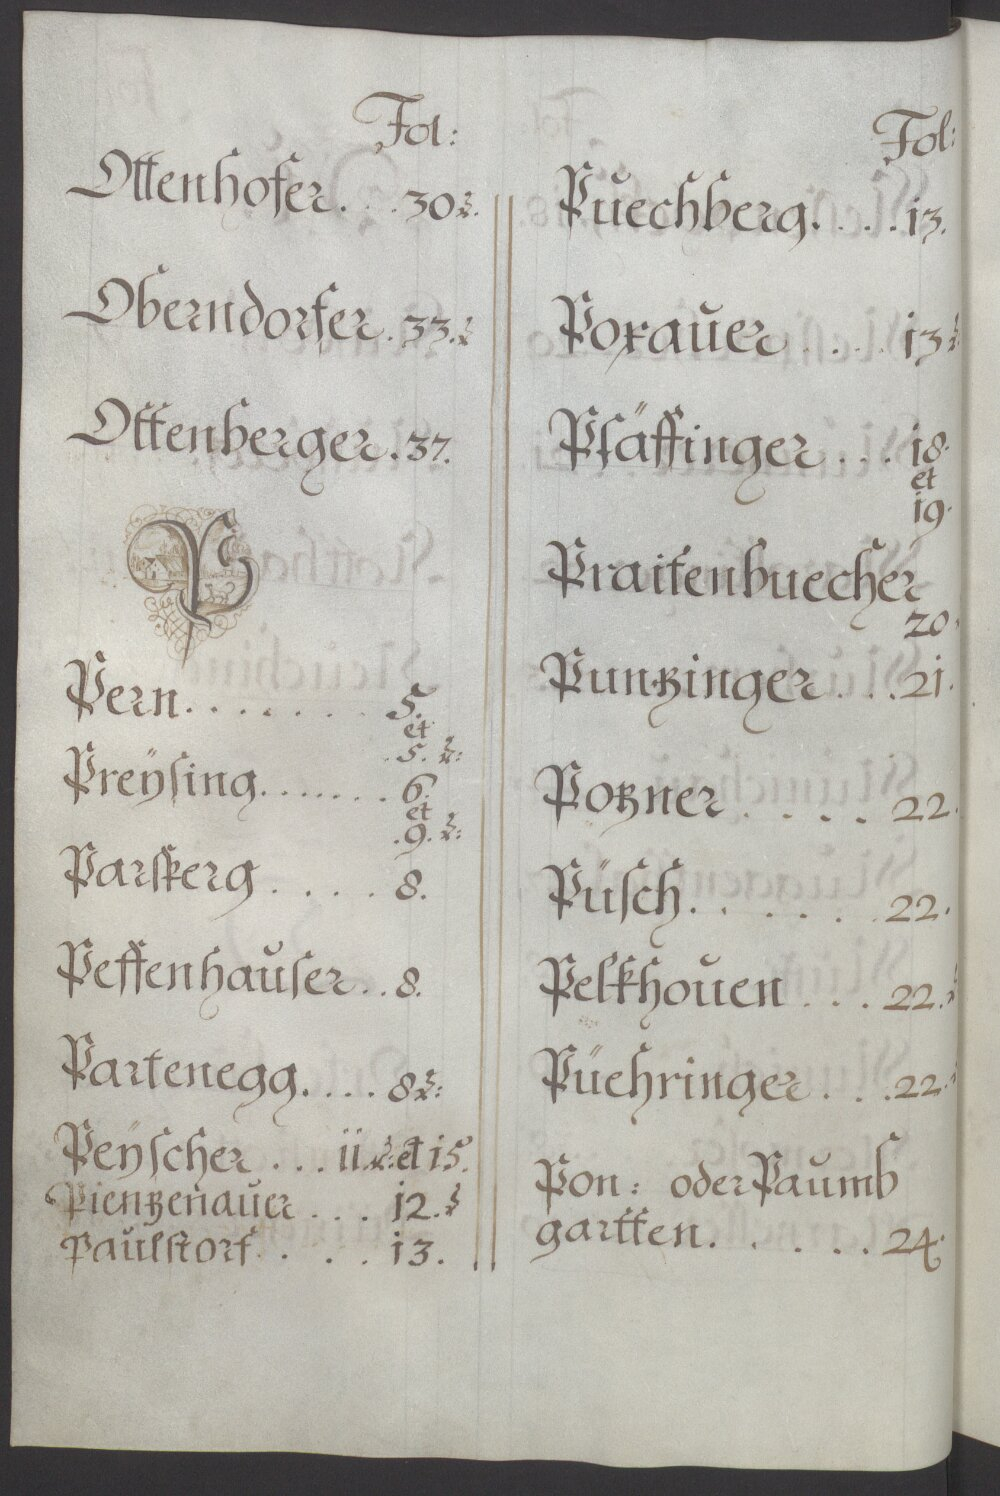 Fol:
Ottenhofer. . . 30.
Oberndorfer. 33.
Ottenberger. 37.
P
Pern. . . . . . . . 5.
et
. 5.
Preÿsing. . . . . . . 6.
et
. 9.
Parsberg . . . . . 8.
Peffenhauser. . . 8.
Partenegg. . . . . 8
Peÿscher . . . 11. et 15.
Pientzenauer . . . 12.
Paulstorf. . . . 13.
Fol:
Puechberg. . . . . 13.
Poxauer . . . . 13
Pfäffinger . . . 18.
et
19.
Praitenbuecher
20.
Puntzinger . . . 21.
Potzner . . . . . 22.
Püsch. . . . . . . 22.
Pelkhouen . . . 22.
Püehringer . . . 22.
Pon: oder Paumb
gartten. . . . . . 24.